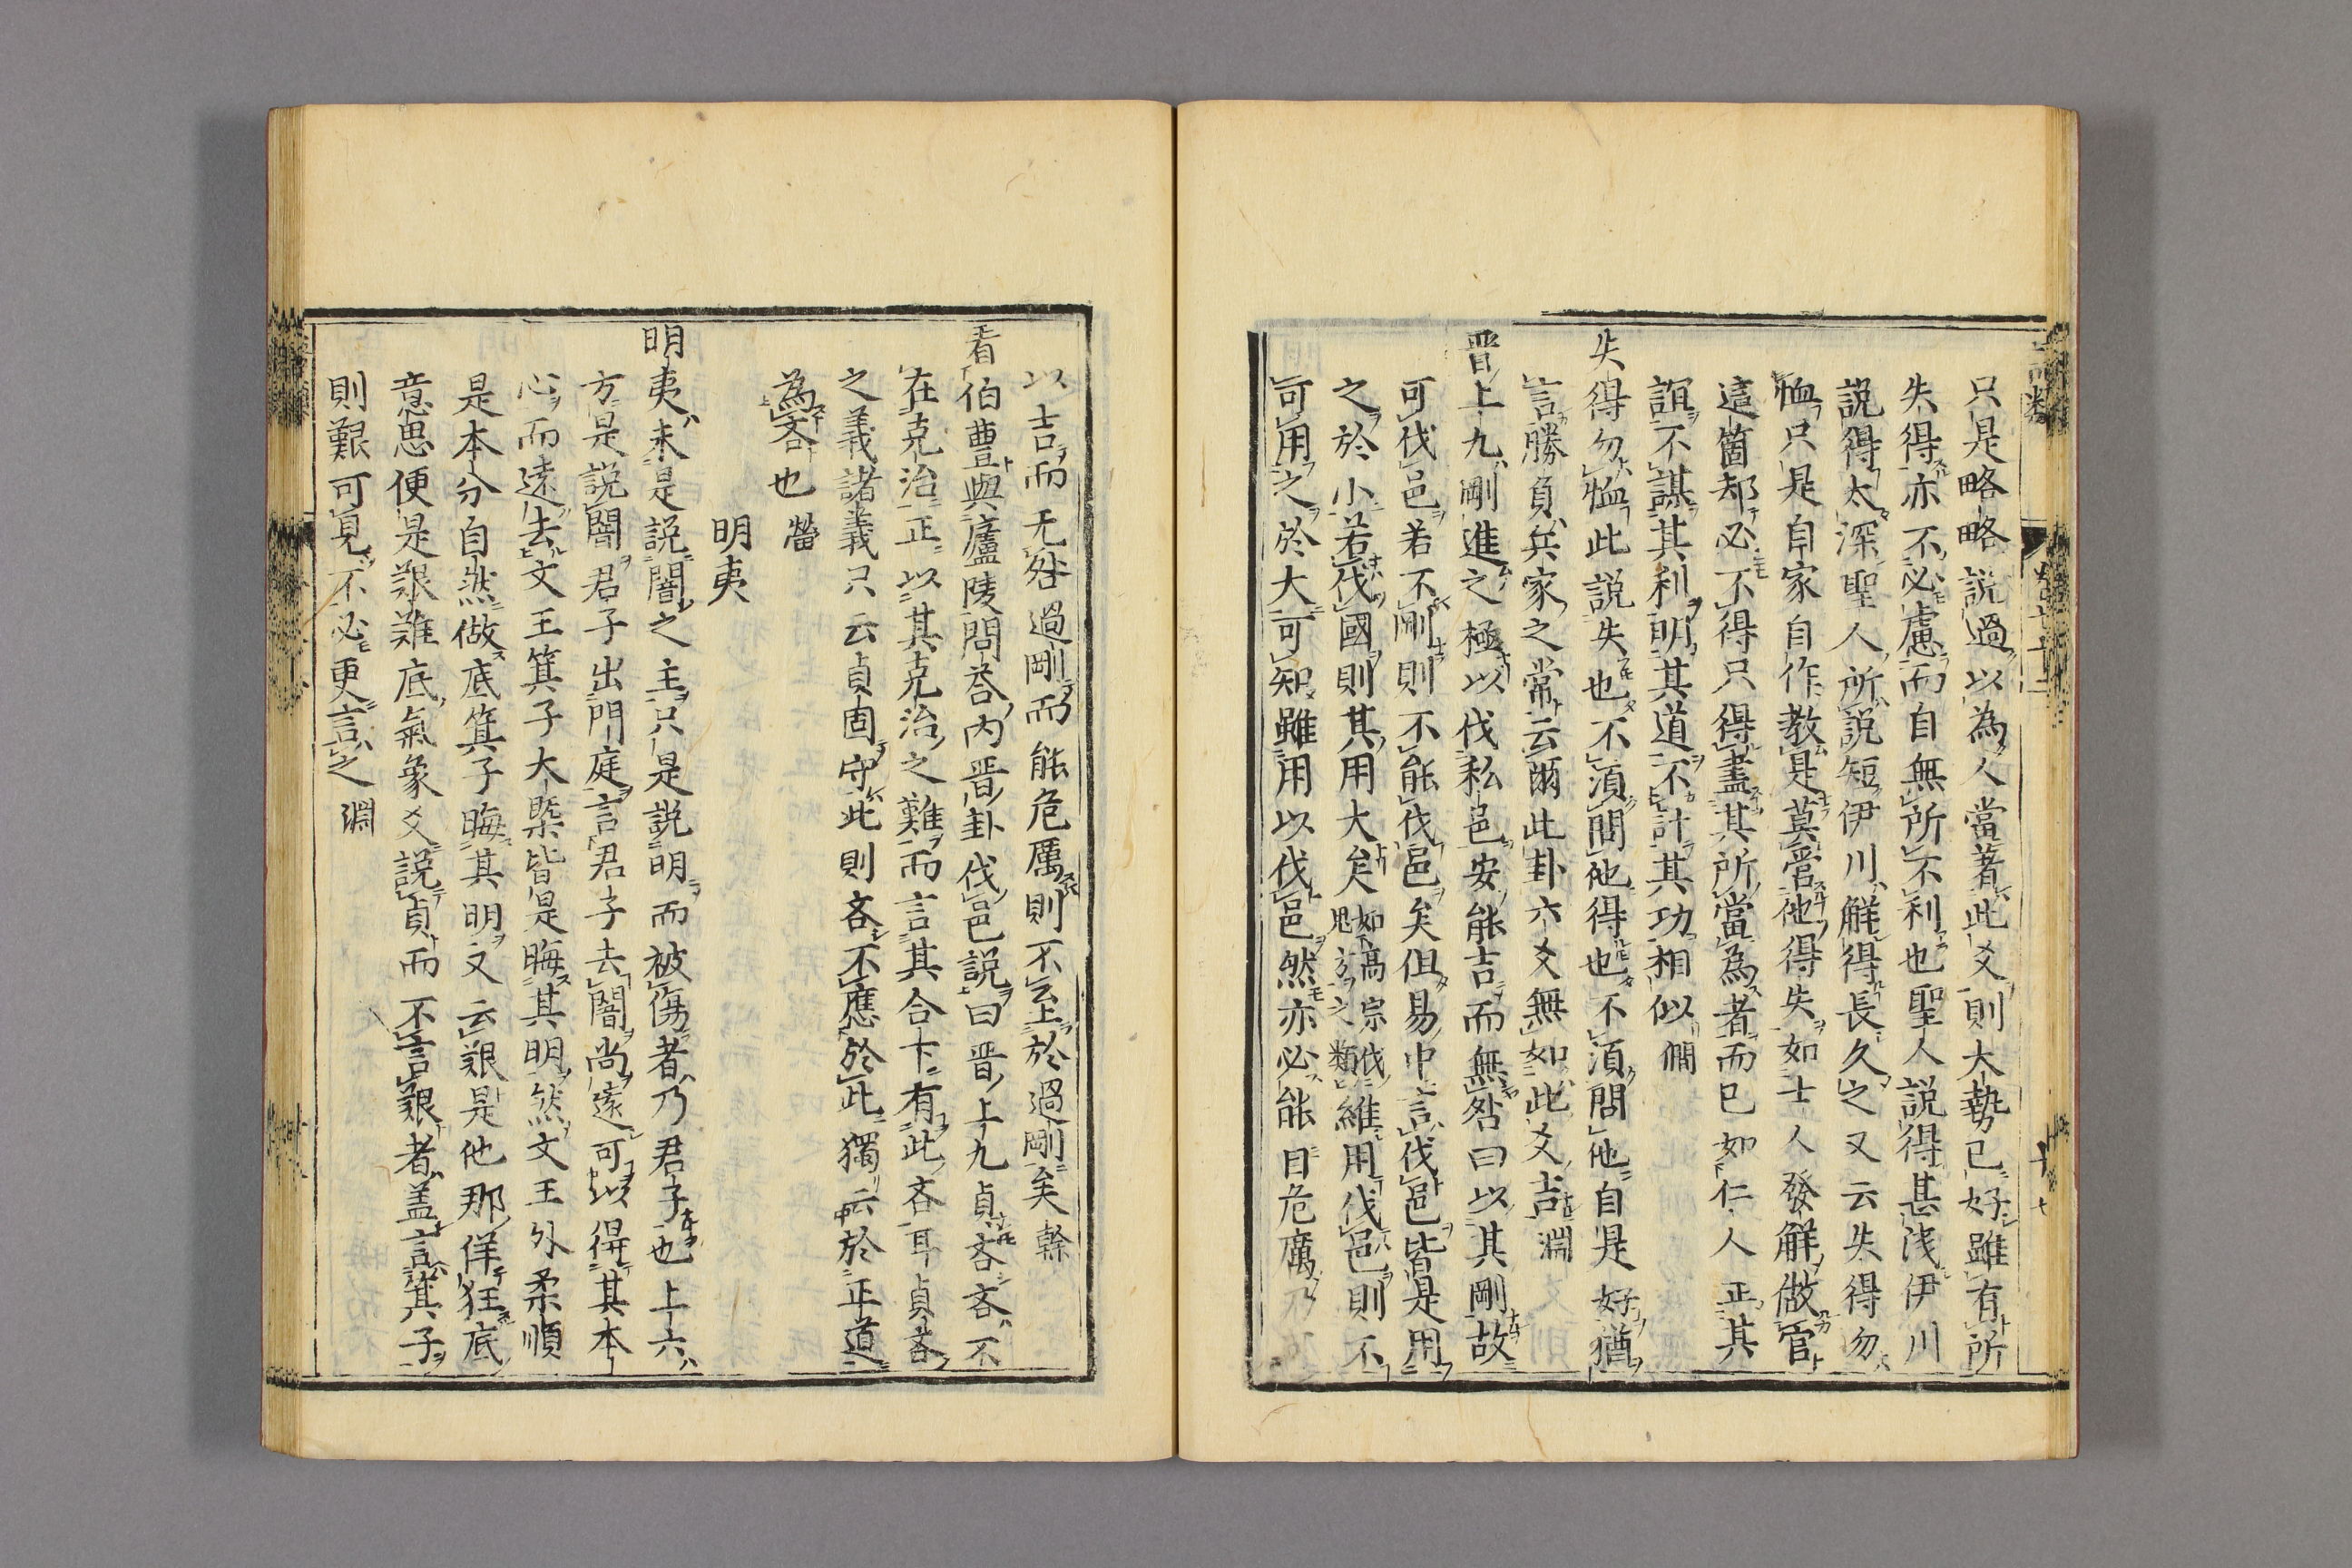 只是略略説過以為人當著此爻則大勢已好雖有所
失得亦不必慮而自無所不利也聖人説得甚淺伊川
説得太深聖人所説短伊川解得長久之又云失得勿
恤只是自家自作教是莫管他得失如士人發解做官
這箇却必不得只得盡其所當為者而已如仁人正其
誼不謀其利明其道不計其功相似僩
失得勿恤此説失也不須問他得也不須問他自是好猶
言勝負兵家之常云爾此卦六爻無如此爻吉淵
晋上九剛進之極以伐私邑安能吉而無咎曰以其剛故
可伐邑若不剛則不能伐邑矣但易中言伐邑皆是用
之於小若伐國則其用大矣如高宗伐鬼方之類維用伐邑則不
可用之於大可知雖用以伐邑然亦必能自危厲乃可
以吉而无咎過剛而能危厲則不至於過剛矣榦
看伯豊與廬陵問答内晋卦伐邑説曰晋上九貞吝吝不
在克治正以其克治之難而言其合下有此吝耳貞吝
之義諸義只云貞固守此則吝不應於此獨云於正道
為吝也㽦
明夷
明夷未是説闇之主只是説明而被傷者乃君子也上六
方是説闇君子出門庭言君子去闇尚遠可以得其本
心而遠去文王箕子大槩皆是晦其明然文王外柔順
是本分自然做底箕子晦其明又云艱是他那佯狂底
意思便是艱難底氣象爻説貞而不言艱者盖言箕子
則艱可見不必更言之淵